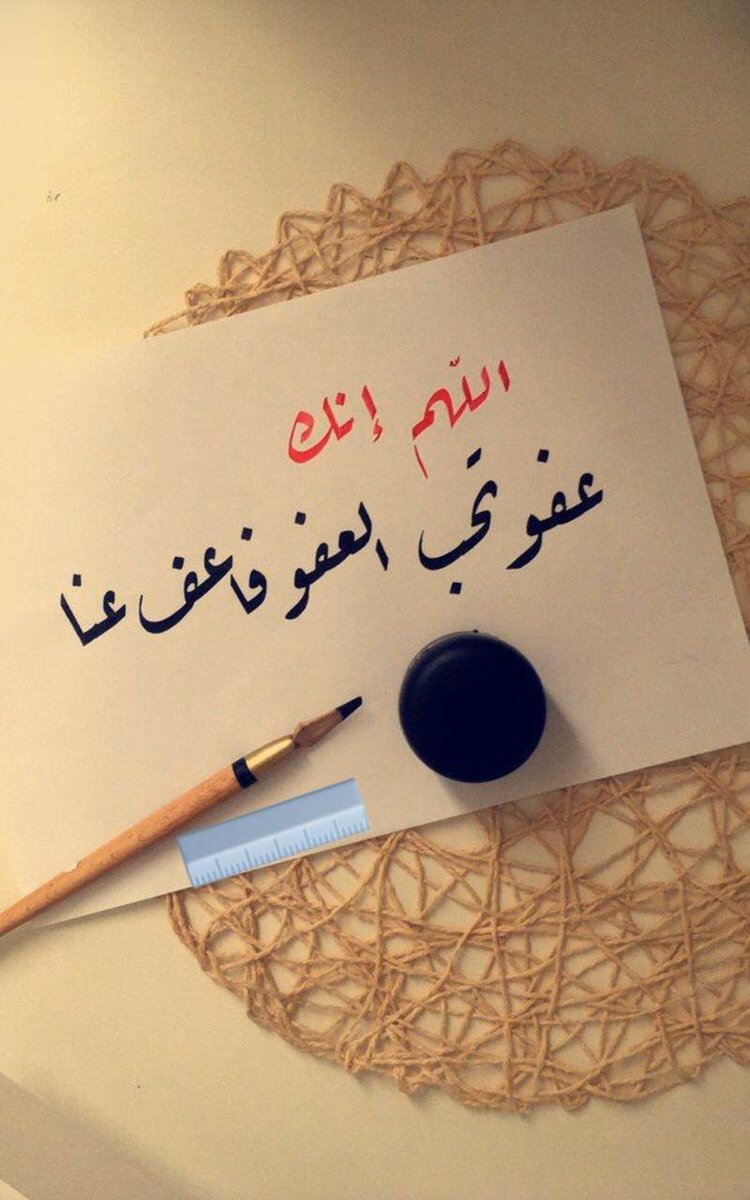 اللّهم إنك
عفو تحب العفو فاعف عنا